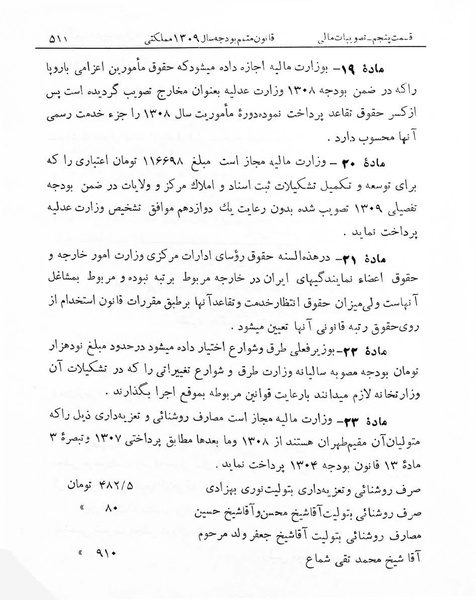 قسمت پنجم-تصویبات مالی قانون متمم بودجه سال ۱۳۰۹ مملکتی ۵۱۱
مادهٔ ۱۹- بوزارت مالیه اجازه داده میشود که حقوق مأمورین اعزامی باروپا
را که در ضمن بودجه ۱۳۰۸ وزارت عدلیه بعنوان مخارج تصویب گردیده است پس
از کسر حقوق تقاعد پرداخت نموده دورهٔ مأموریت سال ۱۳۰۸ را جزء خدمت رسمی
آنها محسوب دارد .
مادهٔ ۲۰ - وزارت مالیه مجاز است مبلغ ۱۱۶۶۹۸ تومان اعتباری را که
برای توسعه و تکمیل تشکیلات ثبت اسناد و املاک مرکز و ولایات در ضمن بودجه
تفصیلی ۱۳۰۹ تصویب شده بدون رعایت یك دوازدهم موافق تشخیص وزارت عدلیه
پرداخت نماید .
مادهٔ ۲۱- در هذه السنه حقوق رؤسای ادارات مرکزی وزارت امور خارجه و
حقوق اعضاء نمایندگیهای ایران در خارجه مربوط برتبه نبوده و مربوط بمشاغل
آنهاست ولی میزان حقوق انتظار خدمت و تقاعد آنها بر طبق مقررات قانون استخدام از
روی حقوق رتبه قانونی آنها تعیین میشود .
مادهٔ ۲۲- بوزیر فعلی طرق و شوارع اختیار داده میشود در حدود مبلغ نود هزار
تومان بودجه مصوبه سالیانه وزارت طرق و شوارع تغییراتی را که در تشکیلات آن
وزارتخانه لازم میدانند بارعایت قوانین مربوطه بموقع اجرا بگذارند .
مادهٔ ۲۳- وزارت مالیه مجاز است مصارف روشنائی و تعزیه داری ذیل را که
متولیان آن مقیم طهران هستند از ۱۳۰۸ وما بعدها مطابق پرداختی ۱۳۰۷ و تبصرهٔ ۳
مادهٔ ۱۳ قانون بودجه ۱۳۰۴ پرداخت نماید .
صرف روشنائی و تعزیه داری بتولیت نوری بهزادی ۴۸۲/۵ تومان
صرف روشنائی بتولیت آقاشیخ محسن و آقاشیخ حسین ۸۰ »
مصارف روشنائی بتولیت آقاشیخ جعفر ولد مرحوم
آقا شیخ محمد تقی شماع ۹۱۰ »